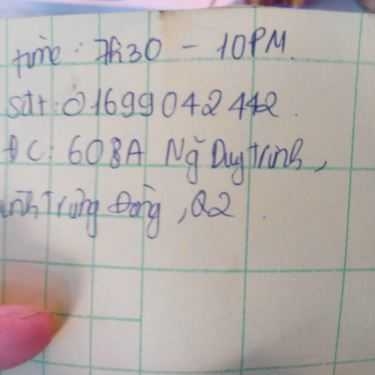 time : 7h30 - 10PM.
sđt : 01699042442.
ĐC : 608A Ng̃ Duy Trinh,
Bình Trưng Đông, Q2.